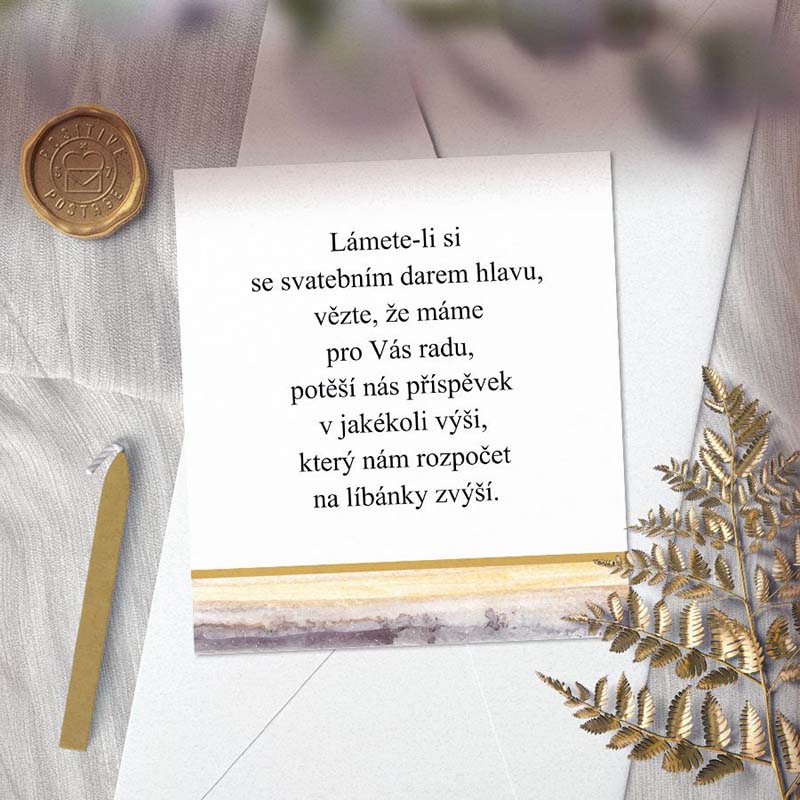 POSITIVE
57
POSTAGE
Lámete-li si
se svatebním darem hlavu,
vězte, že máme
pro Vás radu,
potěší nás příspěvek
v jakékoli výši,
který nám rozpočet
na líbánky zvýší.